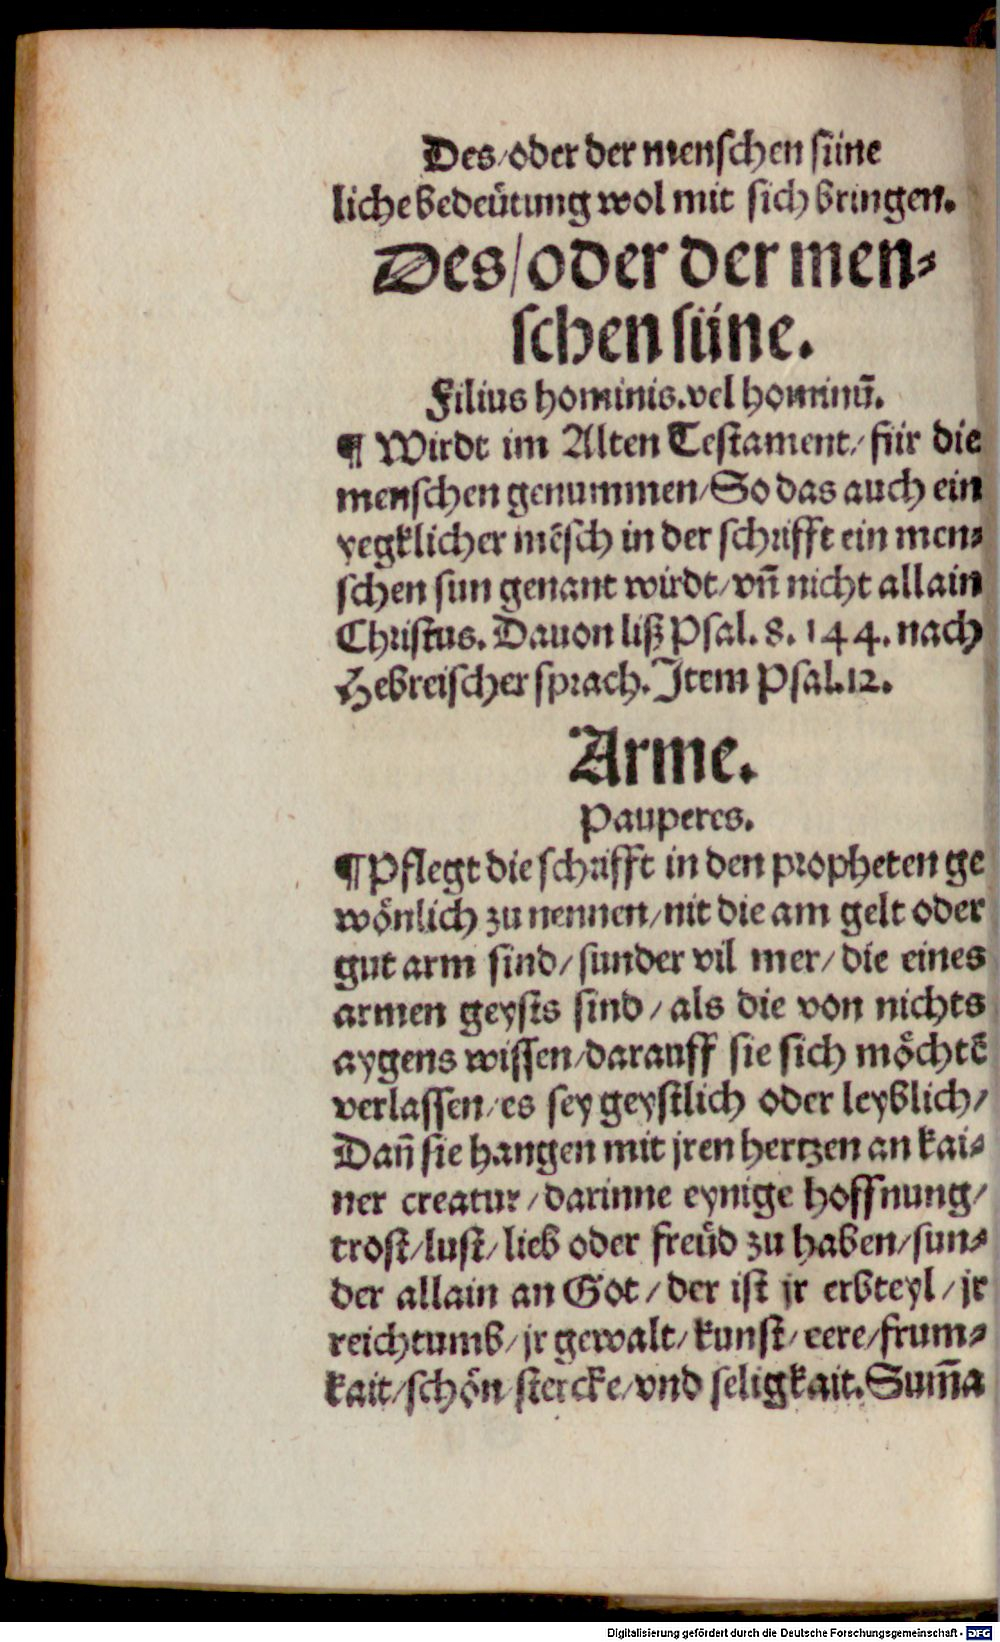 Des/oder der menschen süne
liche bedeütung wol mit sich bringen.
Des/oder der men⸗
schen süne.
Filius hominis.vel hominū.
¶ Wirdt im Alten Testament/ für die
menschen genummen/So das auch ein
yegklicher mēsch in der schrifft ein men⸗
schen sun genant wirdt/vn̄ nicht allain
Christus. Dauon liß Psal. 8. 144. nach
Hebreischer sprach. Item Psal.12.
Arme.
Pauperes.
¶Pflegt die schrifft in den propheten ge
wönlich zu nennen/nit die am gelt oder
gut arm sind/ sunder vil mer/ die eines
armen geysts sind / als die von nichts
aygens wissen/darauff sie sich möchtē
verlassen/es sey geystlich oder leyblich/
Dan̄ sie hangen mit jren hertzen an kai⸗
ner creatur /darinne eynige hoffnung/
trost/lust/ lieb oder freüd zu haben/sun⸗
der allain an Got / der ist jr erbteyl / jr
reichtumb/ jr gewalt/ kunst/ eere/frum⸗
kait/schön/stercke/vnd seligkait.Sum̄a
Digitalisierung gefördert durch die Deutsche Forschungsgemeinschaft - DFG